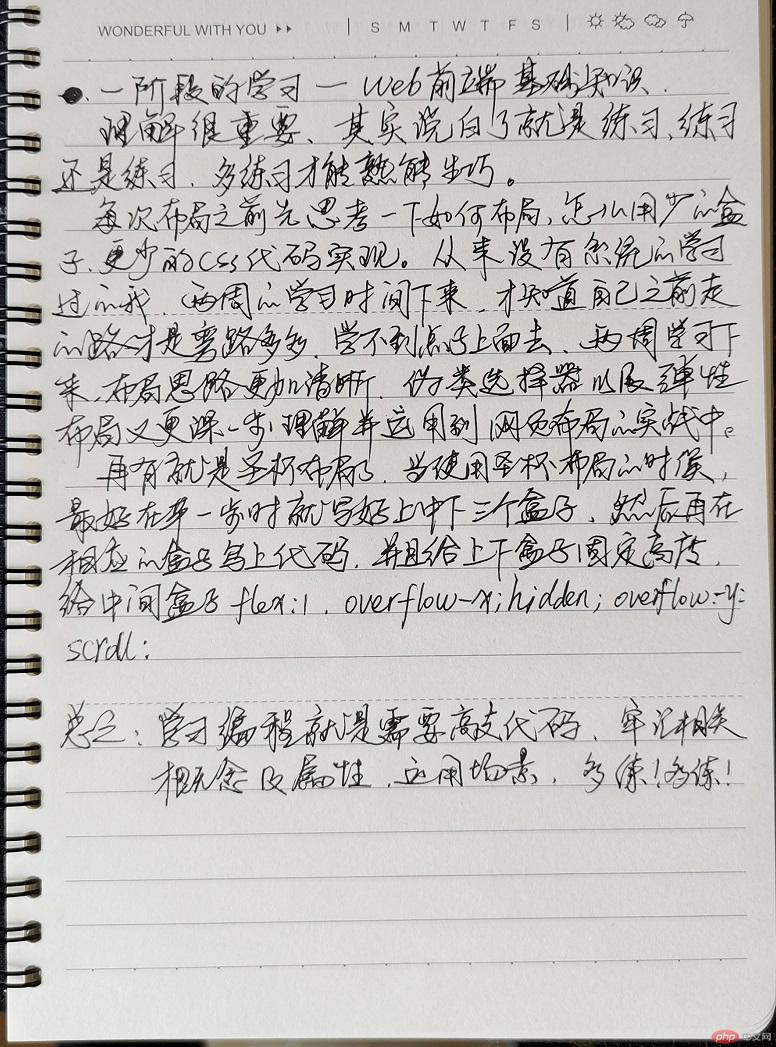 WONDERFUL WITH YOU
S M T W T F S
一阶段的学习 — Web前端基础知识.
理解很重要、其实说白了就是练习,练习
还是练习、多练习才能熟能生巧。
每次布局之前先思考一下如何布局,怎么用少的盒
子、更少的CSS代码实现。从来没有系统的学习
过的我、两周的学习时间下来、才知道自己之前走
的路才是弯路多多、学不到点子上面去、两周学习下
来、布局思路更加清晰、伪类选择器以及弹性
布局又更深一步理解并运用到网页布局的实战中。
再有就是圣杯布局了、当使用圣杯布局的时候,
最好在第一步时就写好上中下三个盒子、然后再在
相应的盒子写上代码、并且给上下盒子固定高度,
给中间盒子flex:1、overflow-x:hidden; overflow-y:
scroll;
总之:学习编程就是需要高支代码、牢记相关
概念及属性、运用场景、多练!多练!
php 中文网